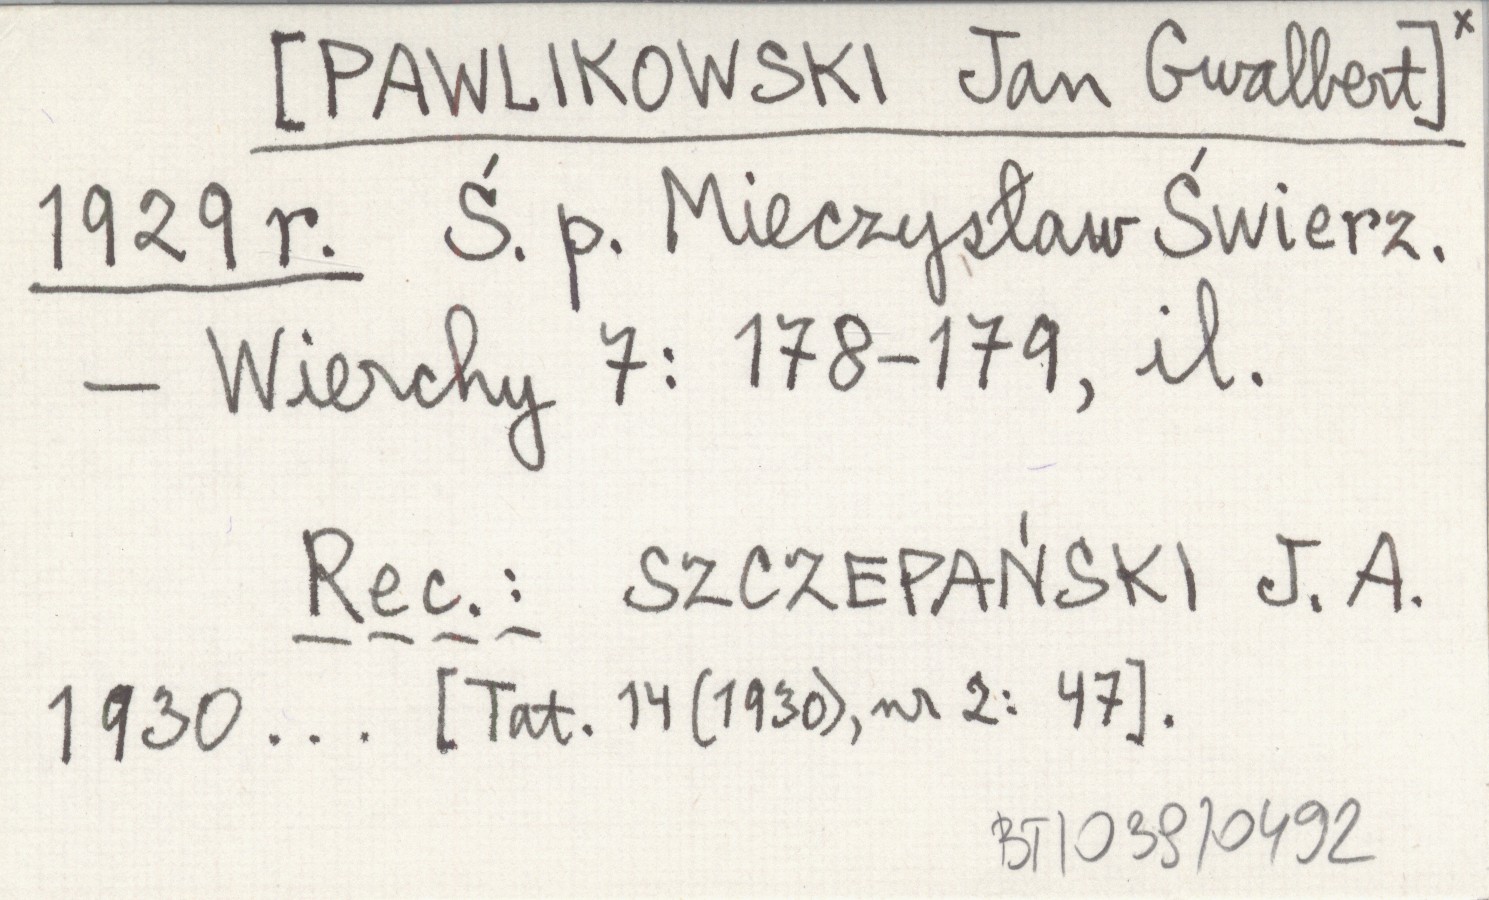 [PAWLIKOWSKI Jan Gwalbert]x
1929 r. Ś. p. Mieczysław Świerz.
— Wierchy 7: 178–179, il.
Rec.: SZCZEPAŃSKI J. A.
1930... [Tat. 14 (1930), nr 2: 47].
BT/039/0492